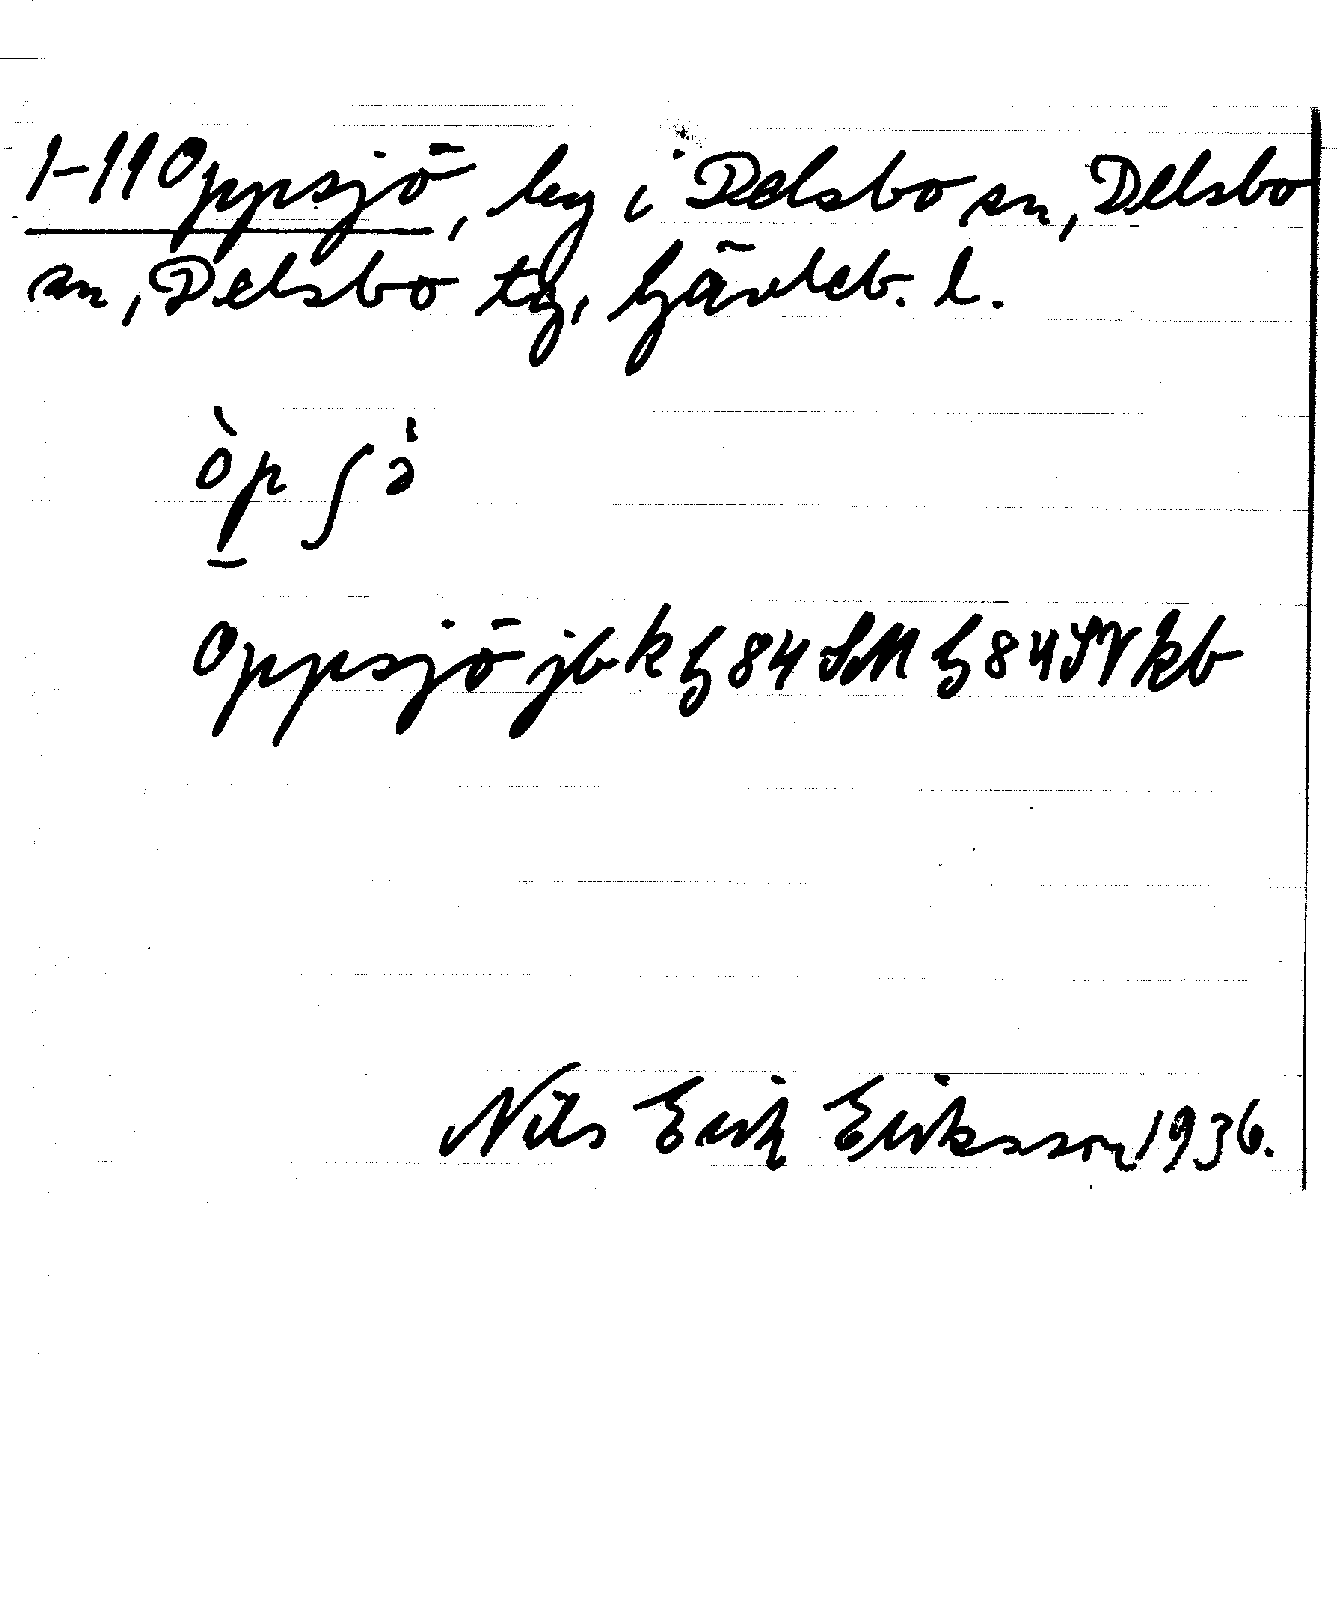 1-11 Oppsjö, by i Delsbo sn, Delsbo
sn, Delsbo tg, Gävleb. l.
òp ʃ ə̀
Oppsjö jb k G 84 SM G 84 SV kb
Nils Erik Eriksson 1936.